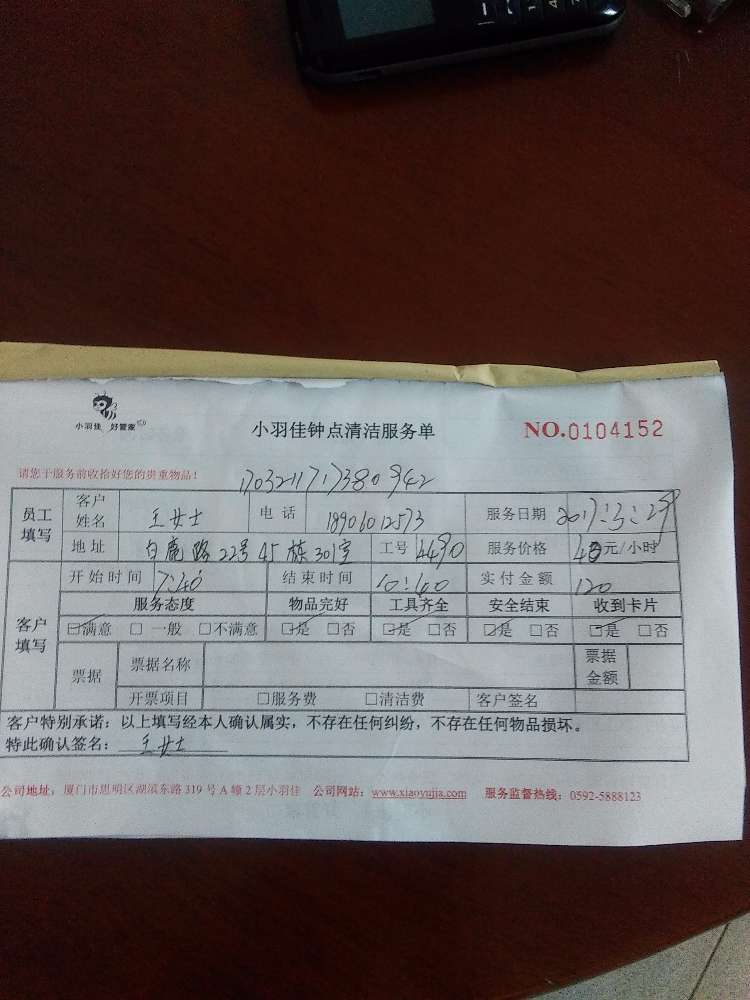 小羽佳 好管家
小羽佳钟点清洁服务单
NO.0104152
请您于服务前收拾好您的贵重物品！
员工填写 客户姓名 王女士 电话 18906012573 服务日期 2017:3:29
地址 白鹿路22号45栋301室 工号 4490 服务价格 40元/小时
客户填写 开始时间 7:40 结束时间 10:40 实付金额 120
服务态度 物品完好 工具齐全 安全结束 收到卡片
☑满意 □一般 □不满意 ☑是 □否 ☑是 □否 ☑是 □否 ☑是 □否
票据 票据名称 票据金额
开票项目 □服务费 □清洁费 客户签名
客户特别承诺：以上填写经本人确认属实，不存在任何纠纷，不存在任何物品损坏。
特此确认签名：王女士
公司地址：厦门市思明区湖滨东路319号A幢2层小羽佳 公司网站：www.xiaoyujia.com 服务监督热线：0592-5888123